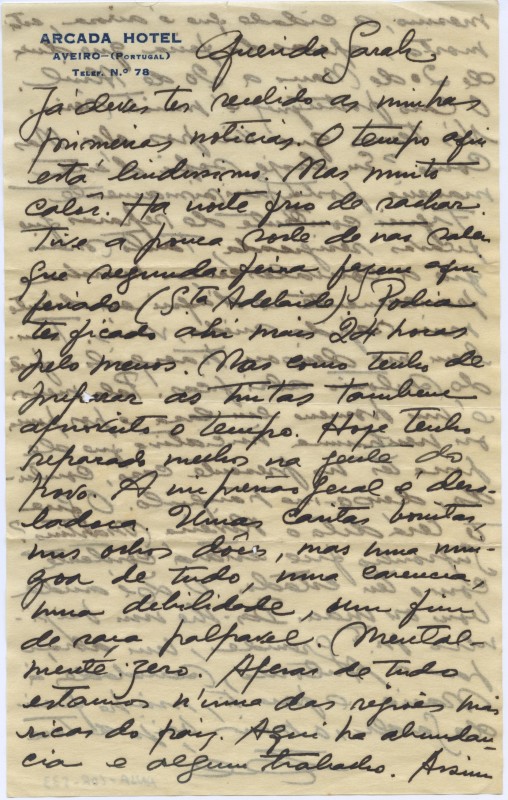 ARCADA HOTEL
AVEIRO—(PORTUGAL)
TELEF. N.º 78
Querida Sarah
Já deves ter recebido as minhas
primeiras noticias. O tempo aqui
está lindissimo. Mas muito
calôr. Ha noite frio de rachar.
Tive a pouca sorte de nao saber
que segunda feira fazem aqui
feriado (Sta Adelaide). Podia
ter ficado ahi mais 24 horas
pelo menos. Mas como tenho de
preparar as tintas tambem
aproveito o tempo. Hoje tenho
reparado melhor na gente do
povo. A impressão geral é deso-
ladora. Umas caritas bonitas,
uns olhos dôces, mas uma min-
goa de tudo, uma carencia,
uma debilidade, um fim
de raça palpavel. Mental-
mente: zero. Apesar de tudo
estamos n'uma das regiões mais
ricas do paiz. Aqui ha abundan-
cia e algum trabalho. Assim